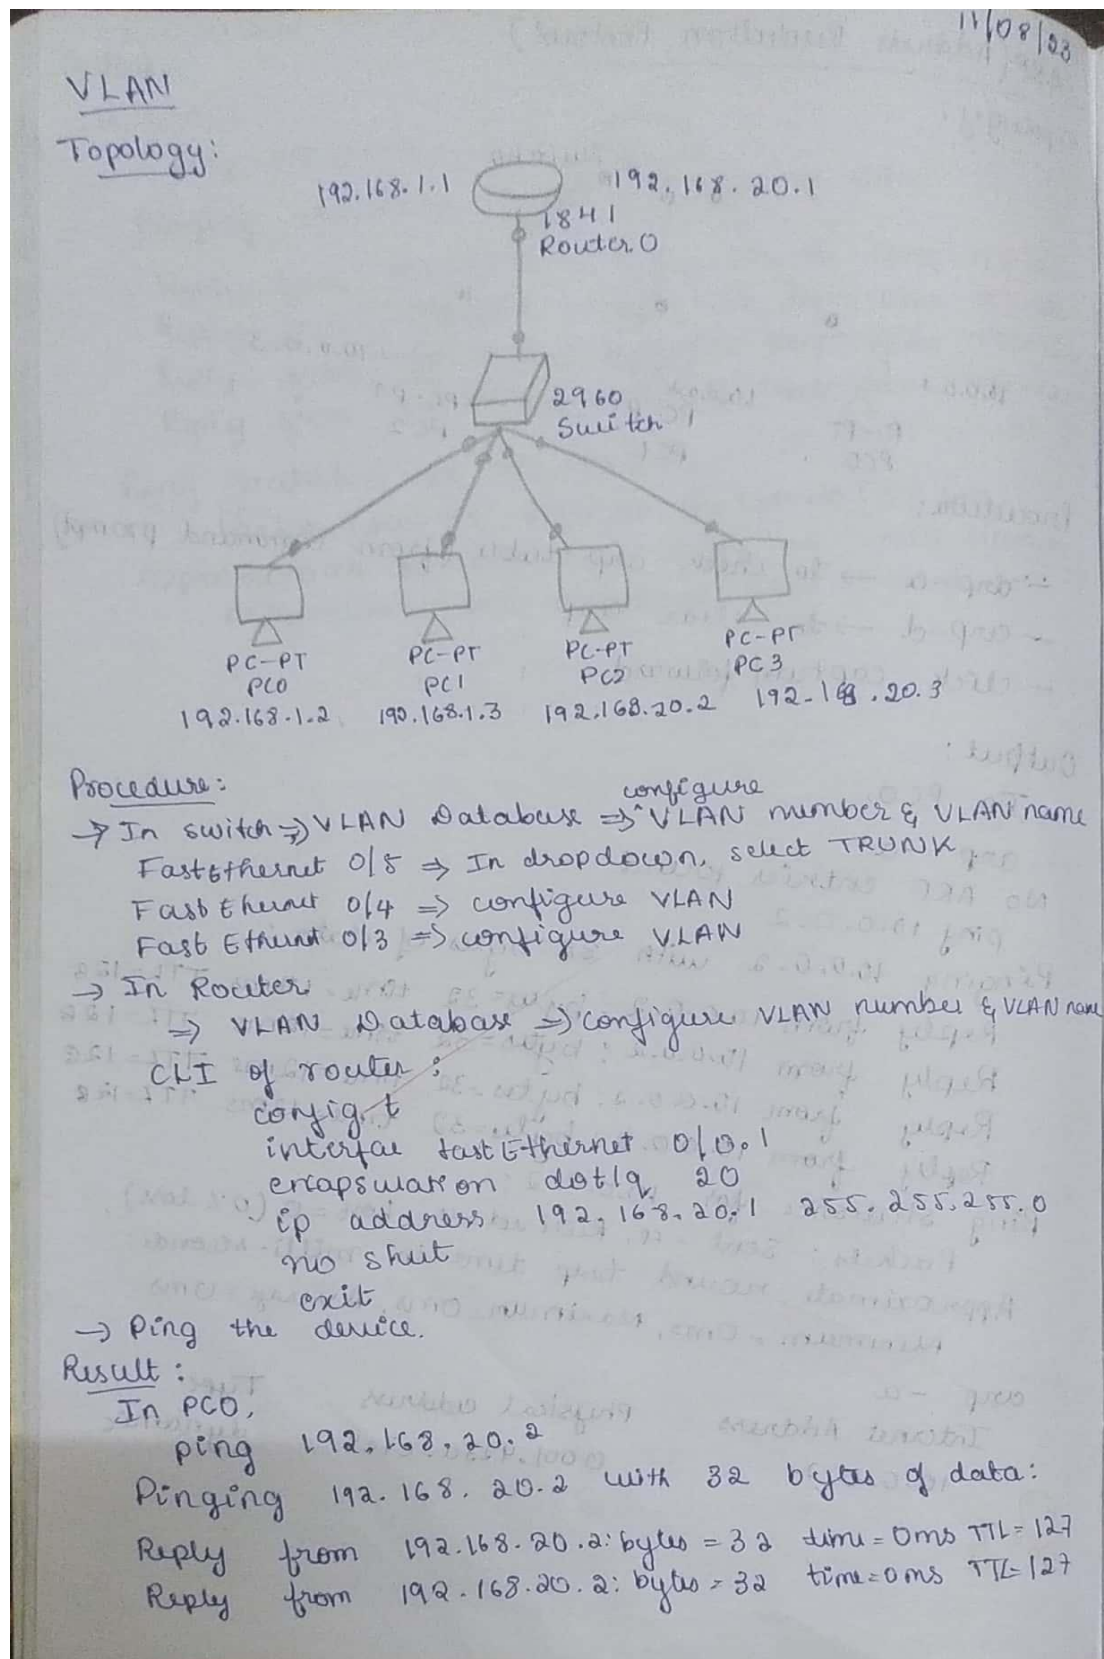 11/08/23
VLAN
Topology:
192.168.1.1 192.168.20.1
1841
Router 0
2960
Switch
PC-PT PC-PT PC-PT PC-PT
PC0 PC1 PC2 PC3
192.168.1.2 192.168.1.3 192.168.20.2 192.168.20.3
Procedure:
→ In switch ⇒ VLAN Database ⇒ ^configure VLAN number & VLAN name
FastEthernet 0/5 ⇒ In dropdown, select TRUNK
Fast Ethernet 0/4 ⇒ configure VLAN
Fast Ethernet 0/3 ⇒ configure VLAN
→ In Router
⇒ VLAN Database ⇒ configure VLAN number & VLAN name
CLI of router:
config t
interface fastEthernet 0/0.1
encapsulation dot1q 20
ip address 192.168.20.1 255.255.255.0
no shut
exit
→ Ping the device.
Result:
In PC0,
ping 192.168.20.2
Pinging 192.168.20.2 with 32 bytes of data:
Reply from 192.168.20.2: bytes = 32 time = 0ms TTL = 127
Reply from 192.168.20.2: bytes = 32 time = 0ms TTL = 127